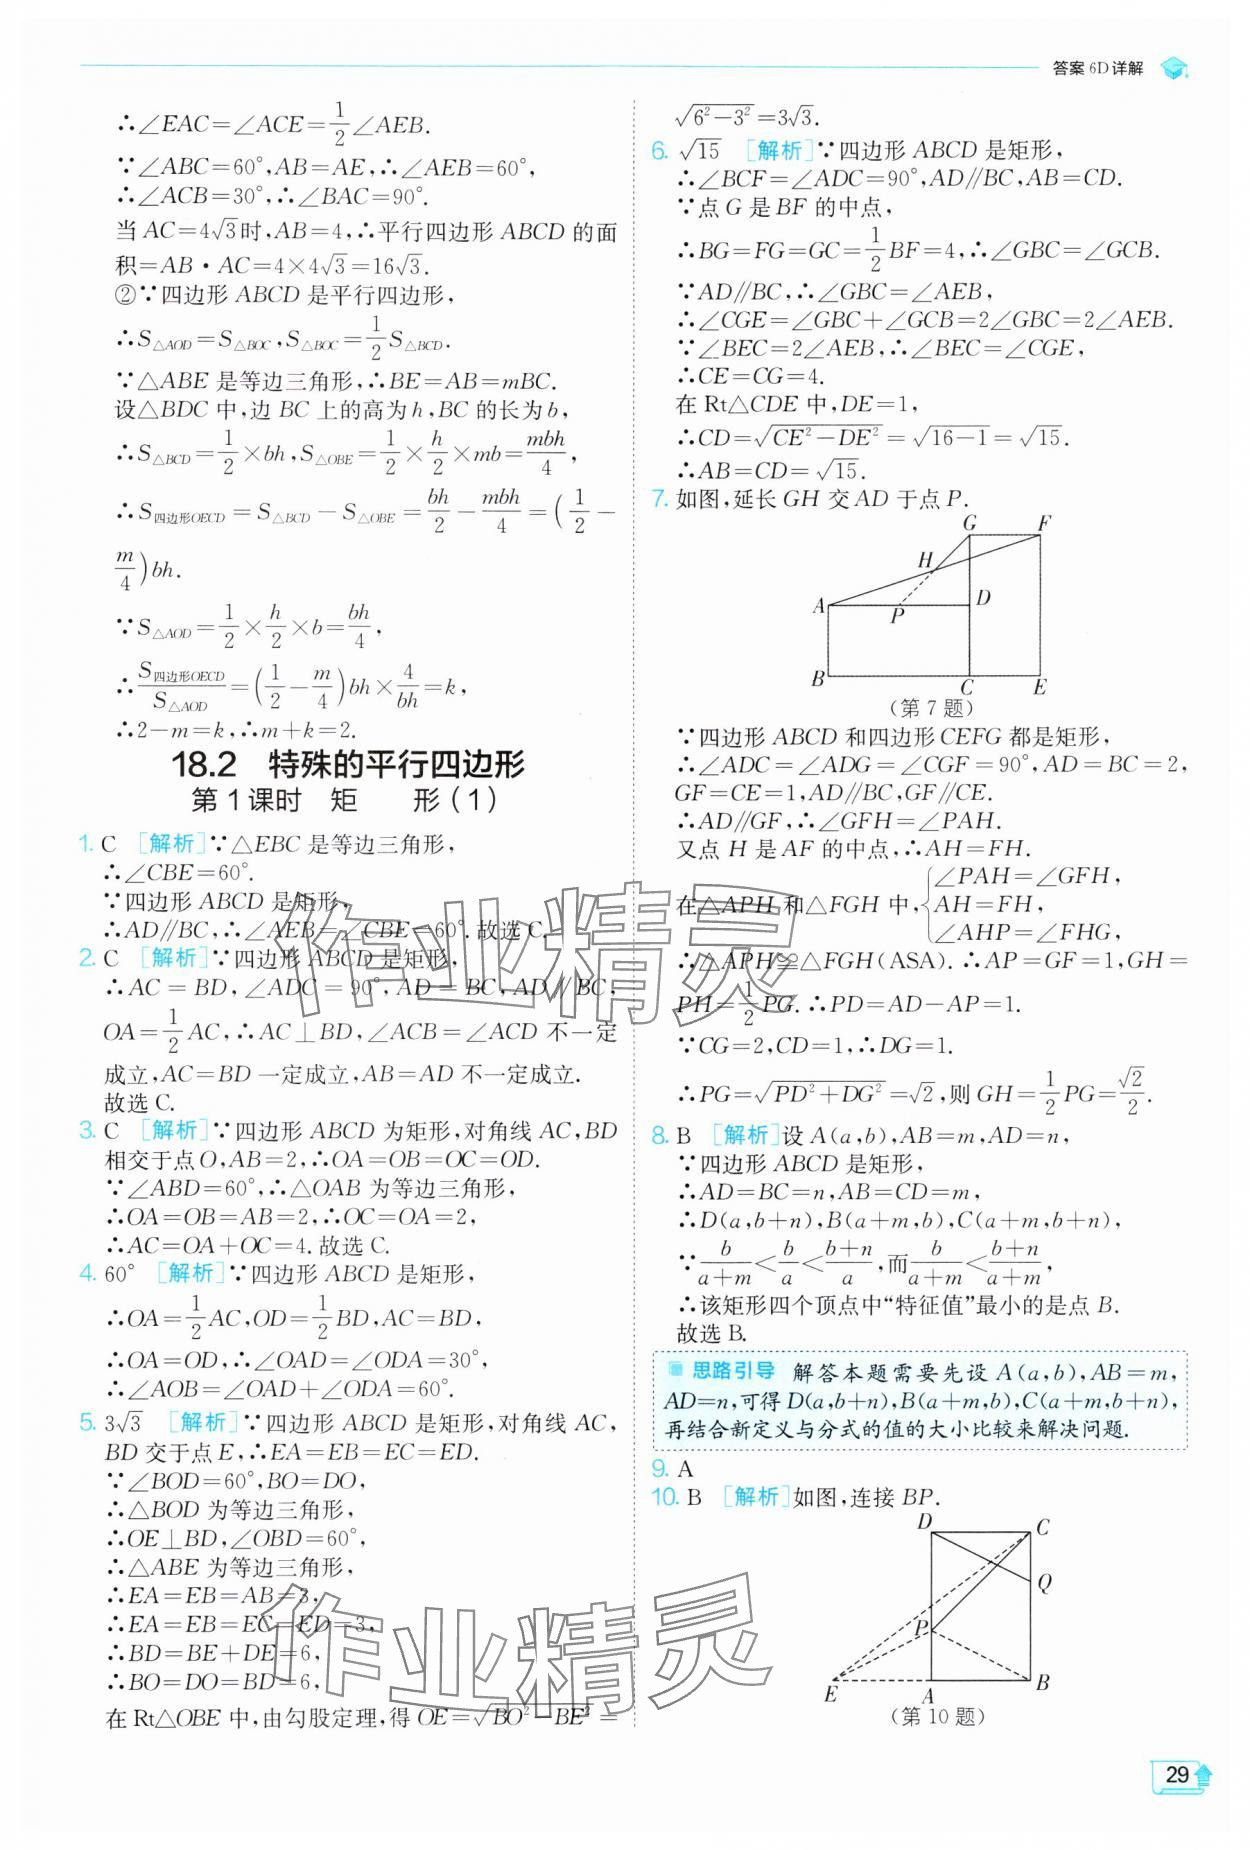 答案 6D 详解
∴∠EAC=∠ACE=1/2∠AEB.
∵∠ABC=60°,AB=AE,∴∠AEB=60°,
∴∠ACB=30°,∴∠BAC=90°.
当AC=4√3时,AB=4,∴平行四边形ABCD的面
积=AB·AC=4×4√3=16√3.
②∵四边形ABCD是平行四边形,
∴S△AOD=S△BOC,S△BOC=1/2S△BCD.
∵△ABE是等边三角形,∴BE=AB=mBC.
设△BDC中,边BC上的高为h,BC的长为b,
∴S△BCD=1/2×bh,S△OBE=1/2×h/2×mb=mbh/4,
∴S四边形OECD=S△BCD-S△OBE=bh/2-mbh/4=(1/2-
m/4)bh.
∵S△AOD=1/2×h/2×b=bh/4,
∴S四边形OECD/S△AOD=(1/2-m/4)bh×4/bh=k,
∴2-m=k,∴m+k=2.
18.2 特殊的平行四边形
第1课时 矩 形(1)
1. C [解析]∵△EBC是等边三角形,
∴∠CBE=60°.
∵四边形ABCD是矩形,
∴AD∥BC,∴∠AEB=∠CBE=60°.故选C.
2. C [解析]∵四边形ABCD是矩形,
∴AC=BD,∠ADC=90°,AD=BC,AD∥BC,
OA=1/2AC,∴AC⊥BD,∠ACB=∠ACD不一定
成立,AC=BD一定成立,AB=AD不一定成立.
故选C.
3. C [解析]∵四边形ABCD为矩形,对角线AC,BD
相交于点O,AB=2,∴OA=OB=OC=OD.
∵∠ABD=60°,∴△OAB为等边三角形,
∴OA=OB=AB=2,∴OC=OA=2,
∴AC=OA+OC=4.故选C.
4. 60° [解析]∵四边形ABCD是矩形,
∴OA=1/2AC,OD=1/2BD,AC=BD,
∴OA=OD,∴∠OAD=∠ODA=30°,
∴∠AOB=∠OAD+∠ODA=60°.
5. 3√3 [解析]∵四边形ABCD是矩形,对角线AC,
BD交于点E,∴EA=EB=EC=ED.
∵∠BOD=60°,BO=DO,
∴△BOD为等边三角形,
∴OE⊥BD,∠OBD=60°,
∴△ABE为等边三角形,
∴EA=EB=AB=3,
∴EA=EB=EC=ED=3,
∴BD=BE+DE=6,
∴BO=DO=BD=6,
在Rt△OBE中,由勾股定理,得OE=√(BO²-BE²)=
√(6²-3²)=3√3.
6. √15 [解析]∵四边形ABCD是矩形,
∴∠BCF=∠ADC=90°,AD∥BC,AB=CD.
∵点G是BF的中点,
∴BG=FG=GC=1/2BF=4,∴∠GBC=∠GCB.
∵AD∥BC,∴∠GBC=∠AEB,
∴∠CGE=∠GBC+∠GCB=2∠GBC=2∠AEB.
∵∠BEC=2∠AEB,∴∠BEC=∠CGE,
∴CE=CG=4.
在Rt△CDE中,DE=1,
∴CD=√(CE²-DE²)=√(16-1)=√15.
∴AB=CD=√15.
7. 如图,延长GH交AD于点P.
G F
H
A P D
B C E
(第7题)
∵四边形ABCD和四边形CEFG都是矩形,
∴∠ADC=∠ADG=∠CGF=90°,AD=BC=2,
GF=CE=1,AD∥BC,GF∥CE.
∴AD∥GF,∴∠GFH=∠PAH.
又点H是AF的中点,∴AH=FH.
在△APH和△FGH中,{∠PAH=∠GFH,
AH=FH,
∠AHP=∠FHG,
∴△APH≌△FGH(ASA).∴AP=GF=1,GH=
PH=1/2PG.∴PD=AD-AP=1.
∵CG=2,CD=1,∴DG=1.
∴PG=√(PD²+DG²)=√2,则GH=1/2PG=√2/2.
8. B [解析]设A(a,b),AB=m,AD=n,
∵四边形ABCD是矩形,
∴AD=BC=n,AB=CD=m,
∴D(a,b+n),B(a+m,b),C(a+m,b+n),
∵b/(a+m)<b/a<(b+n)/a,而b/(a+m)<(b+n)/(a+m),
∴该矩形四个顶点中“特征值”最小的是点B.
故选B.
思路引导 解答本题需要先设A(a,b),AB=m,
AD=n,可得D(a,b+n),B(a+m,b),C(a+m,b+n),
再结合新定义与分式的值的大小比较来解决问题.
9. A
10. B [解析]如图,连接BP.
D C
Q
P
E A B
(第10题)
29
作业精灵
作业精灵